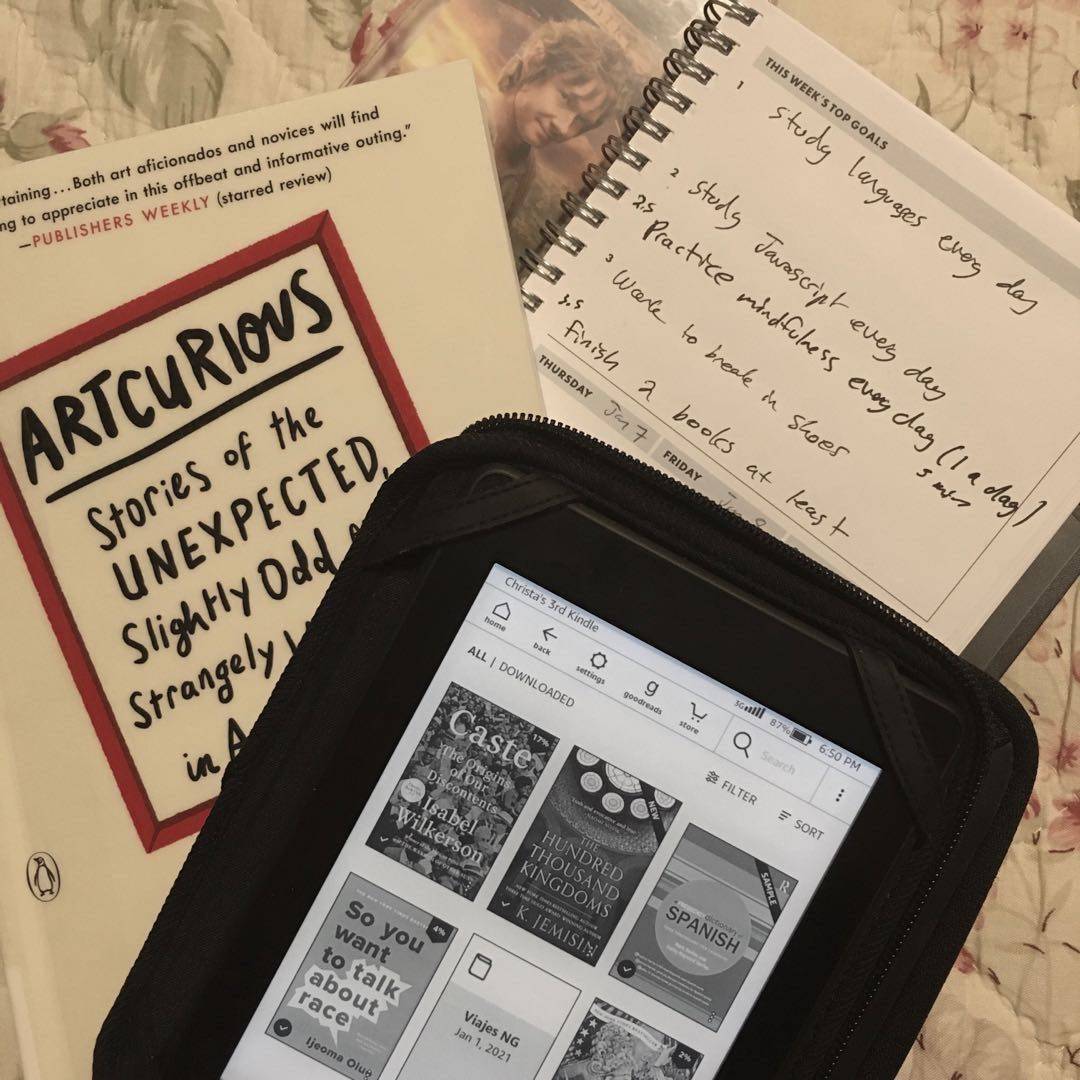 taining...Both art aficionados and novices will find
ng to appreciate in this offbeat and informative outing."
—PUBLISHERS WEEKLY (starred review)
ARTCURIOUS
Stories of the
UNEXPECTED,
Slightly Odd
Strangely
in
THIS WEEK'S TOP GOALS
1 Study languages every day
2 Study Javascript every day
2.5 Practice mindfulness every day (1 a day)
5 min
3 Work to break in shoes
3.5 Finish 2 books at least
THURSDAY Jan 7
FRIDAY Jan 8
Christa's 3rd Kindle
3G 87% 6:50 PM
home back settings goodreads store Search
ALL | DOWNLOADED
FILTER SORT
17%
Caste
The Origins
of Our
Discontents
Isabel
Wilkerson
NEW
THE
HUNDRED
THOUSAND
KINGDOMS
N. K. JEMISIN
SAMPLE
dictionary
SPANISH
4%
So you
want
to talk
about
race
Ijeoma
Viajes NG
Jan 1, 2021
2%